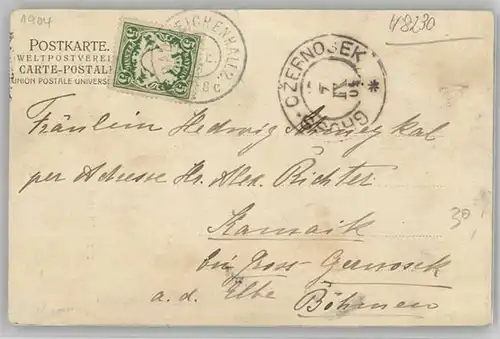 1904
48230
POSTKARTE.
WELTPOSTVEREIN
CARTE-POSTALE
UNION POSTALE UNIVERSELLE
REICHENHALL 2.
5 5
5 5
GROSS-CZERNOSEK *
Fräulein Hedwig
per Adresse Hr. Alex. Richter
Kamaik
bei Gross Czernosek
a. d. Elbe Böhmen
30,